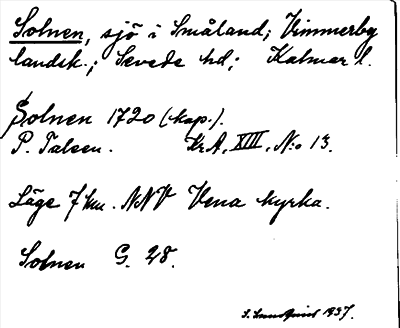 Solnen, sjö i Småland; Vimmerby
landsk.; Sevede hd; Kalmar l.
Solnen 1720 (kop.).
P. Talsen. KrA, XIII, N:o 13.
Läge 7 km. NNV Vena kyrka.
Solnen G. 28.
1937.